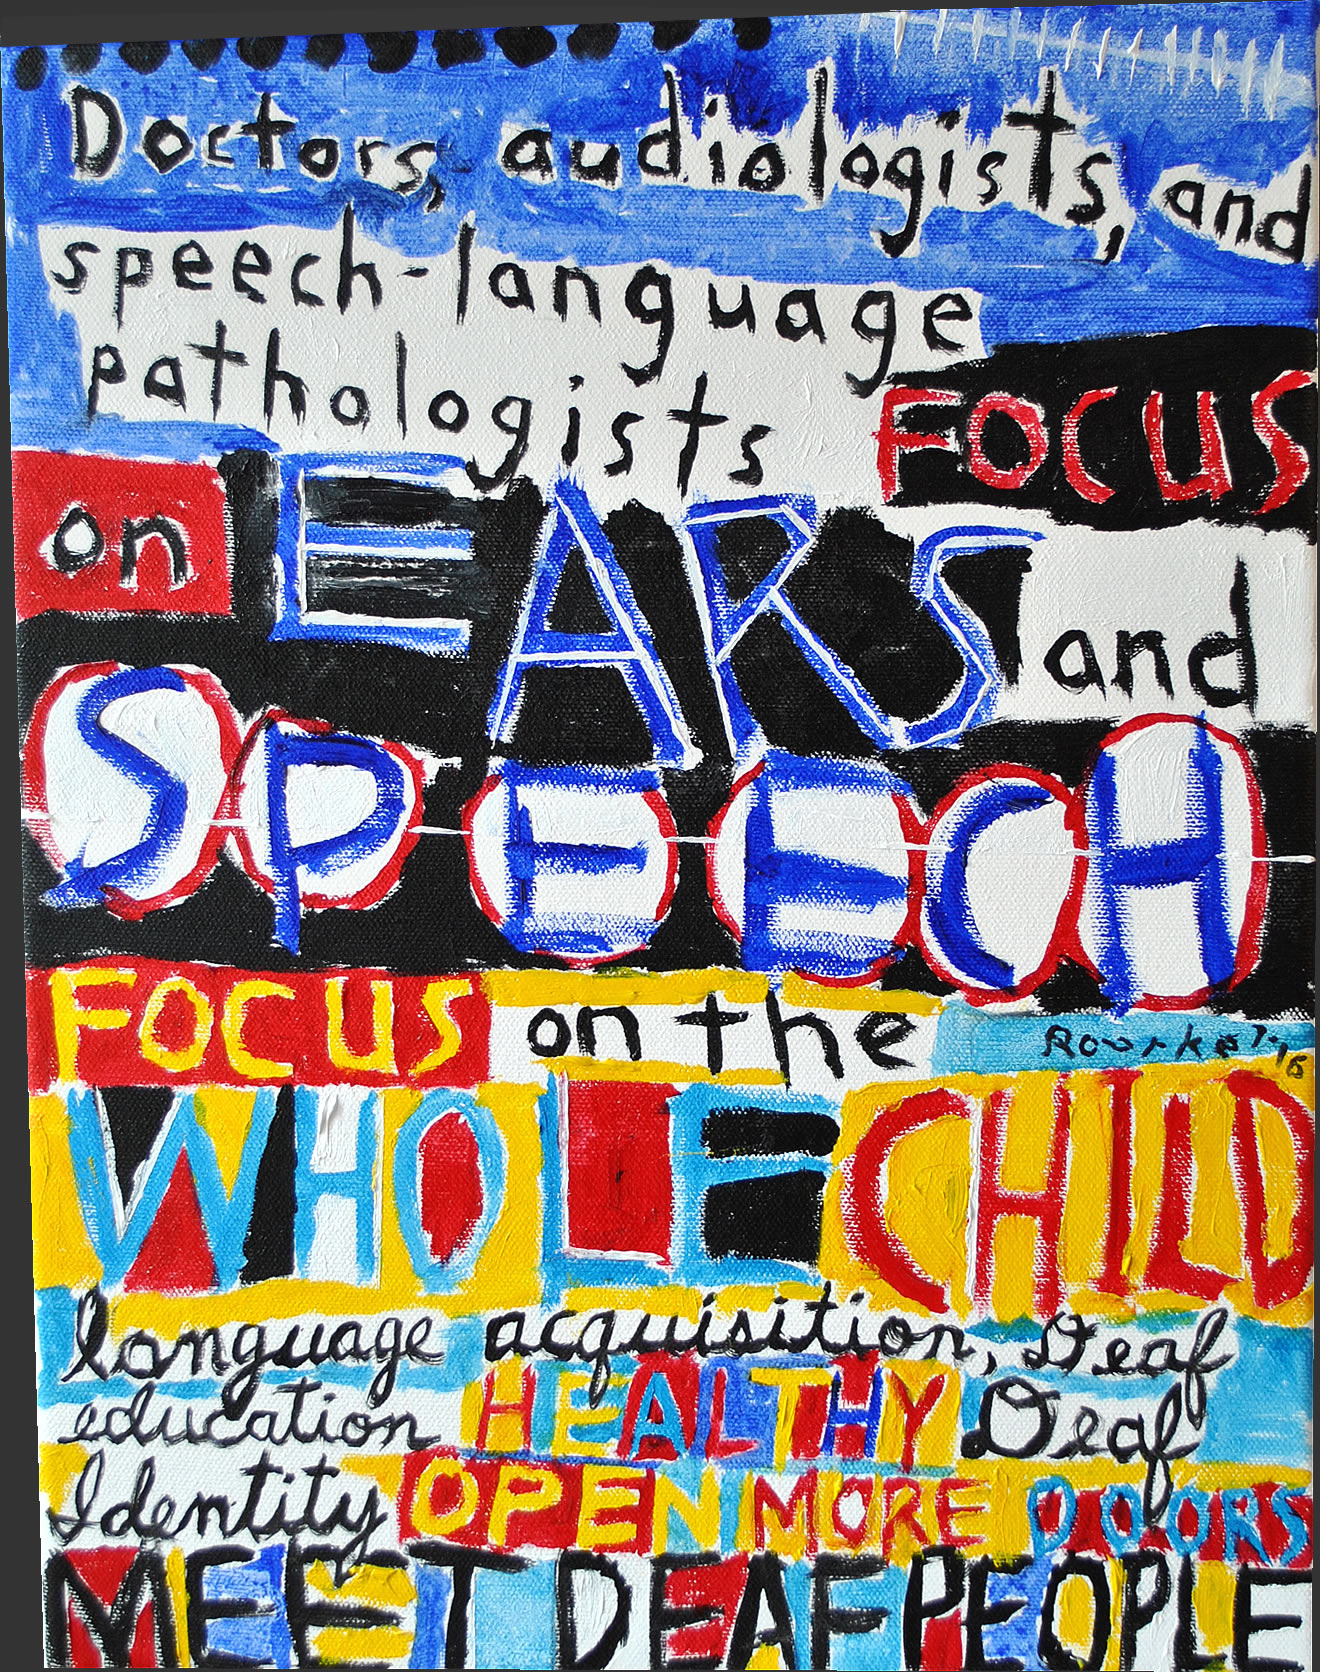 Doctors, audiologists, and
speech-language
pathologists FOCUS
on EARS and
SPEECH
FOCUS on the
Rourke J. '16
WHOLE CHILD
language acquisition, Deaf
education HEALTHY Deaf
Identity OPEN MORE DOORS
MEET DEAF PEOPLE